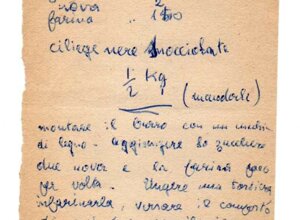 nova 2
farina 150
ciliege nere snocciolate
1/2 Kg
(mandorle)
montare il burro con un cucchiaio
di legno. Aggiungere lo zucchero
due nova e la farina poco
per volta. Ungere una tortiera
infarinarla, versare il composto